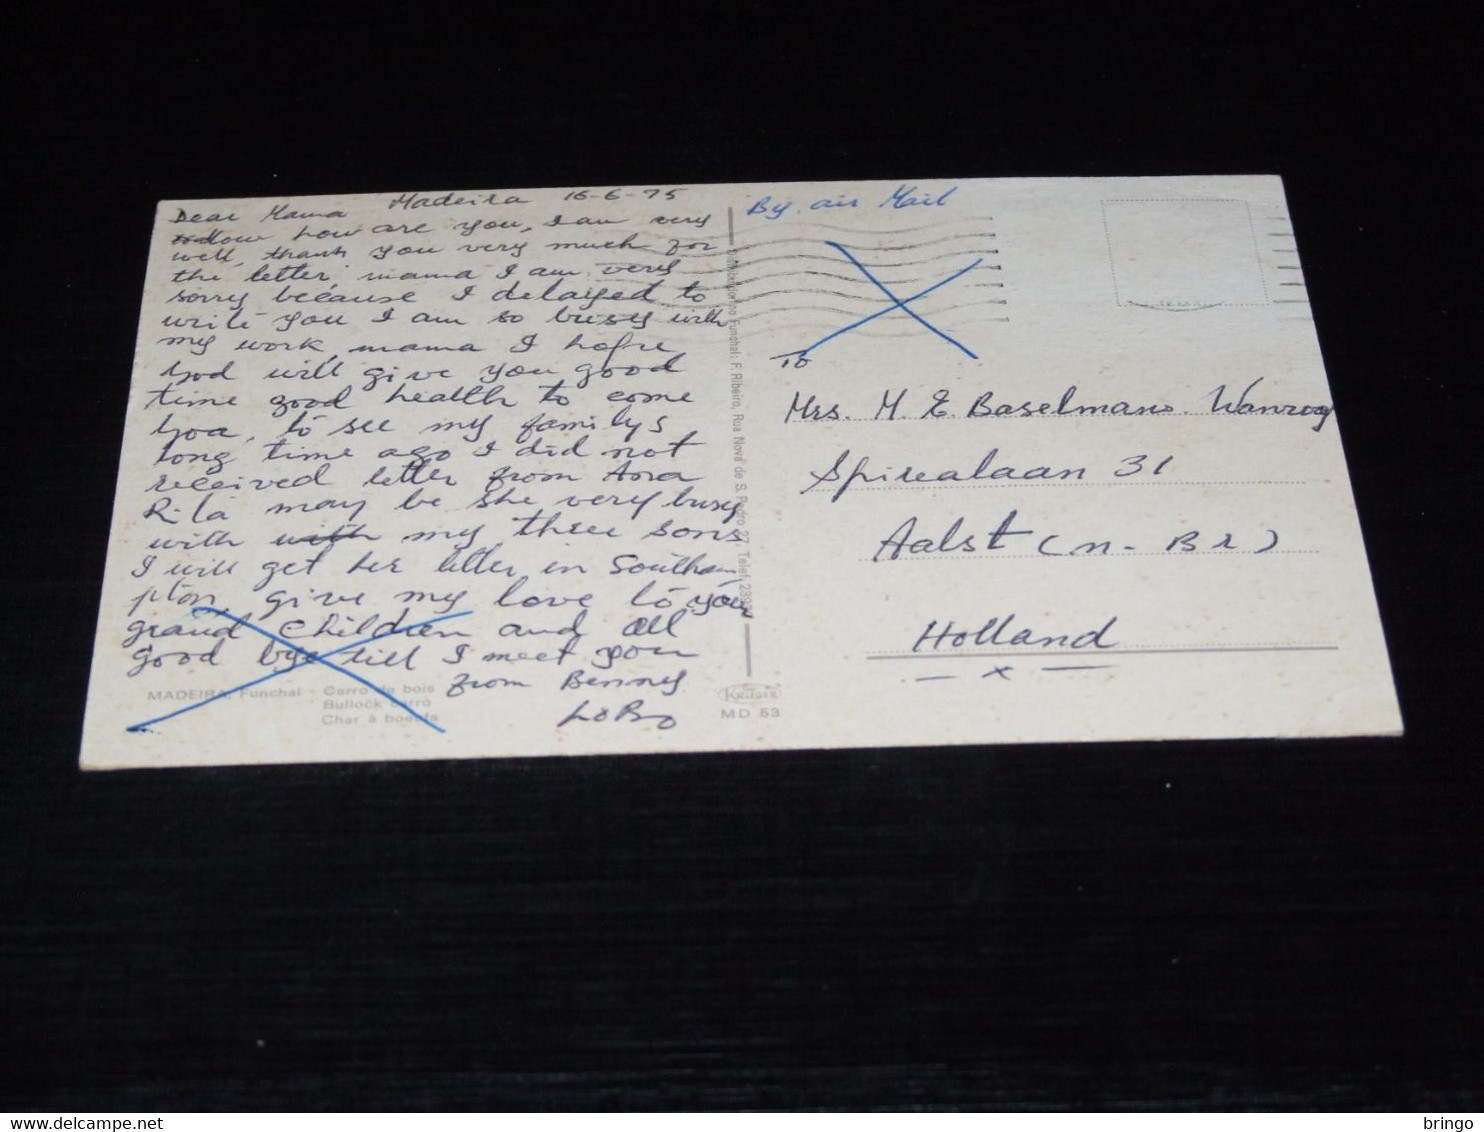 Madeira 16-6-75
Dear Mama
how are you, I am very
well, thank you very much for
the letter mama I am very
sorry because I delayed to
write you I am so busy with
my work, mama I hope
God will give you good
time good health to come
Goa, to see my familys
long time ago I did not
received letter from Ana
Rita may be she very busy
with with my three sons
I will get her letter in Southam
pton, give my love to your
grand children and all
good bye till I meet you
from Benny
LoBo
MADEIRA, Funchal - Carro de bois
Bullock carro
Char à boeufs
KRÜGER
MD 53
Funchal: F. Ribeiro, Rua Nova de S. Pedro 27, Telef.
By air Mail
To
Mrs. M. E. Baselmans. Wanrog
Spirealaan 31
Aalst (n-Br)
Holland
- x -
delcampe.net
bringo